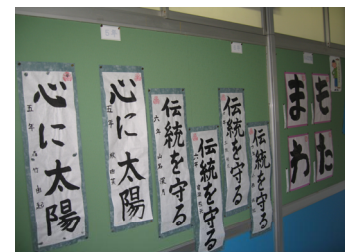 心に太陽
五年
心に太陽
五年
伝統を守る
六年
伝統を守る
六年
伝統を守る
伝統を守る
まも
わた